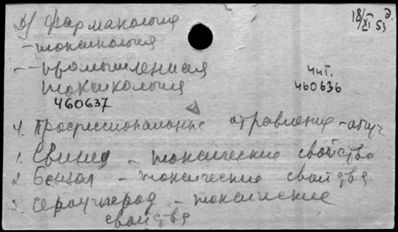 д) фармакология
18/XI 53 д.
- токсикология
- - промышленная
токсикология
чит.
460636
460637
4. Профессиональные отравления -
1. Свинец - токсические свойства
2. Бензол - токсические свойства
3. Сероуглерод - токсические
свойства